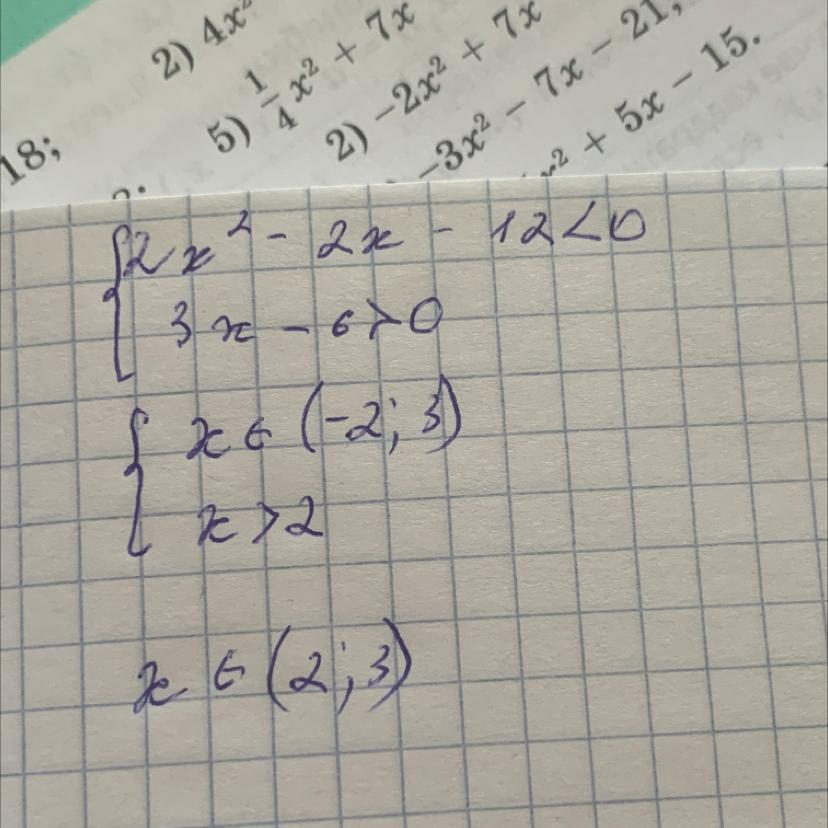 2) 4x²
18;
5) 1/4 x² + 7x
2) −2x² + 7x
−3x² − 7x − 21;
x² + 5x − 15.
{ 2x² − 2x − 12 < 0
3x − 6 > 0
{ x ∈ (−2; 3)
x > 2
x ∈ (2; 3)